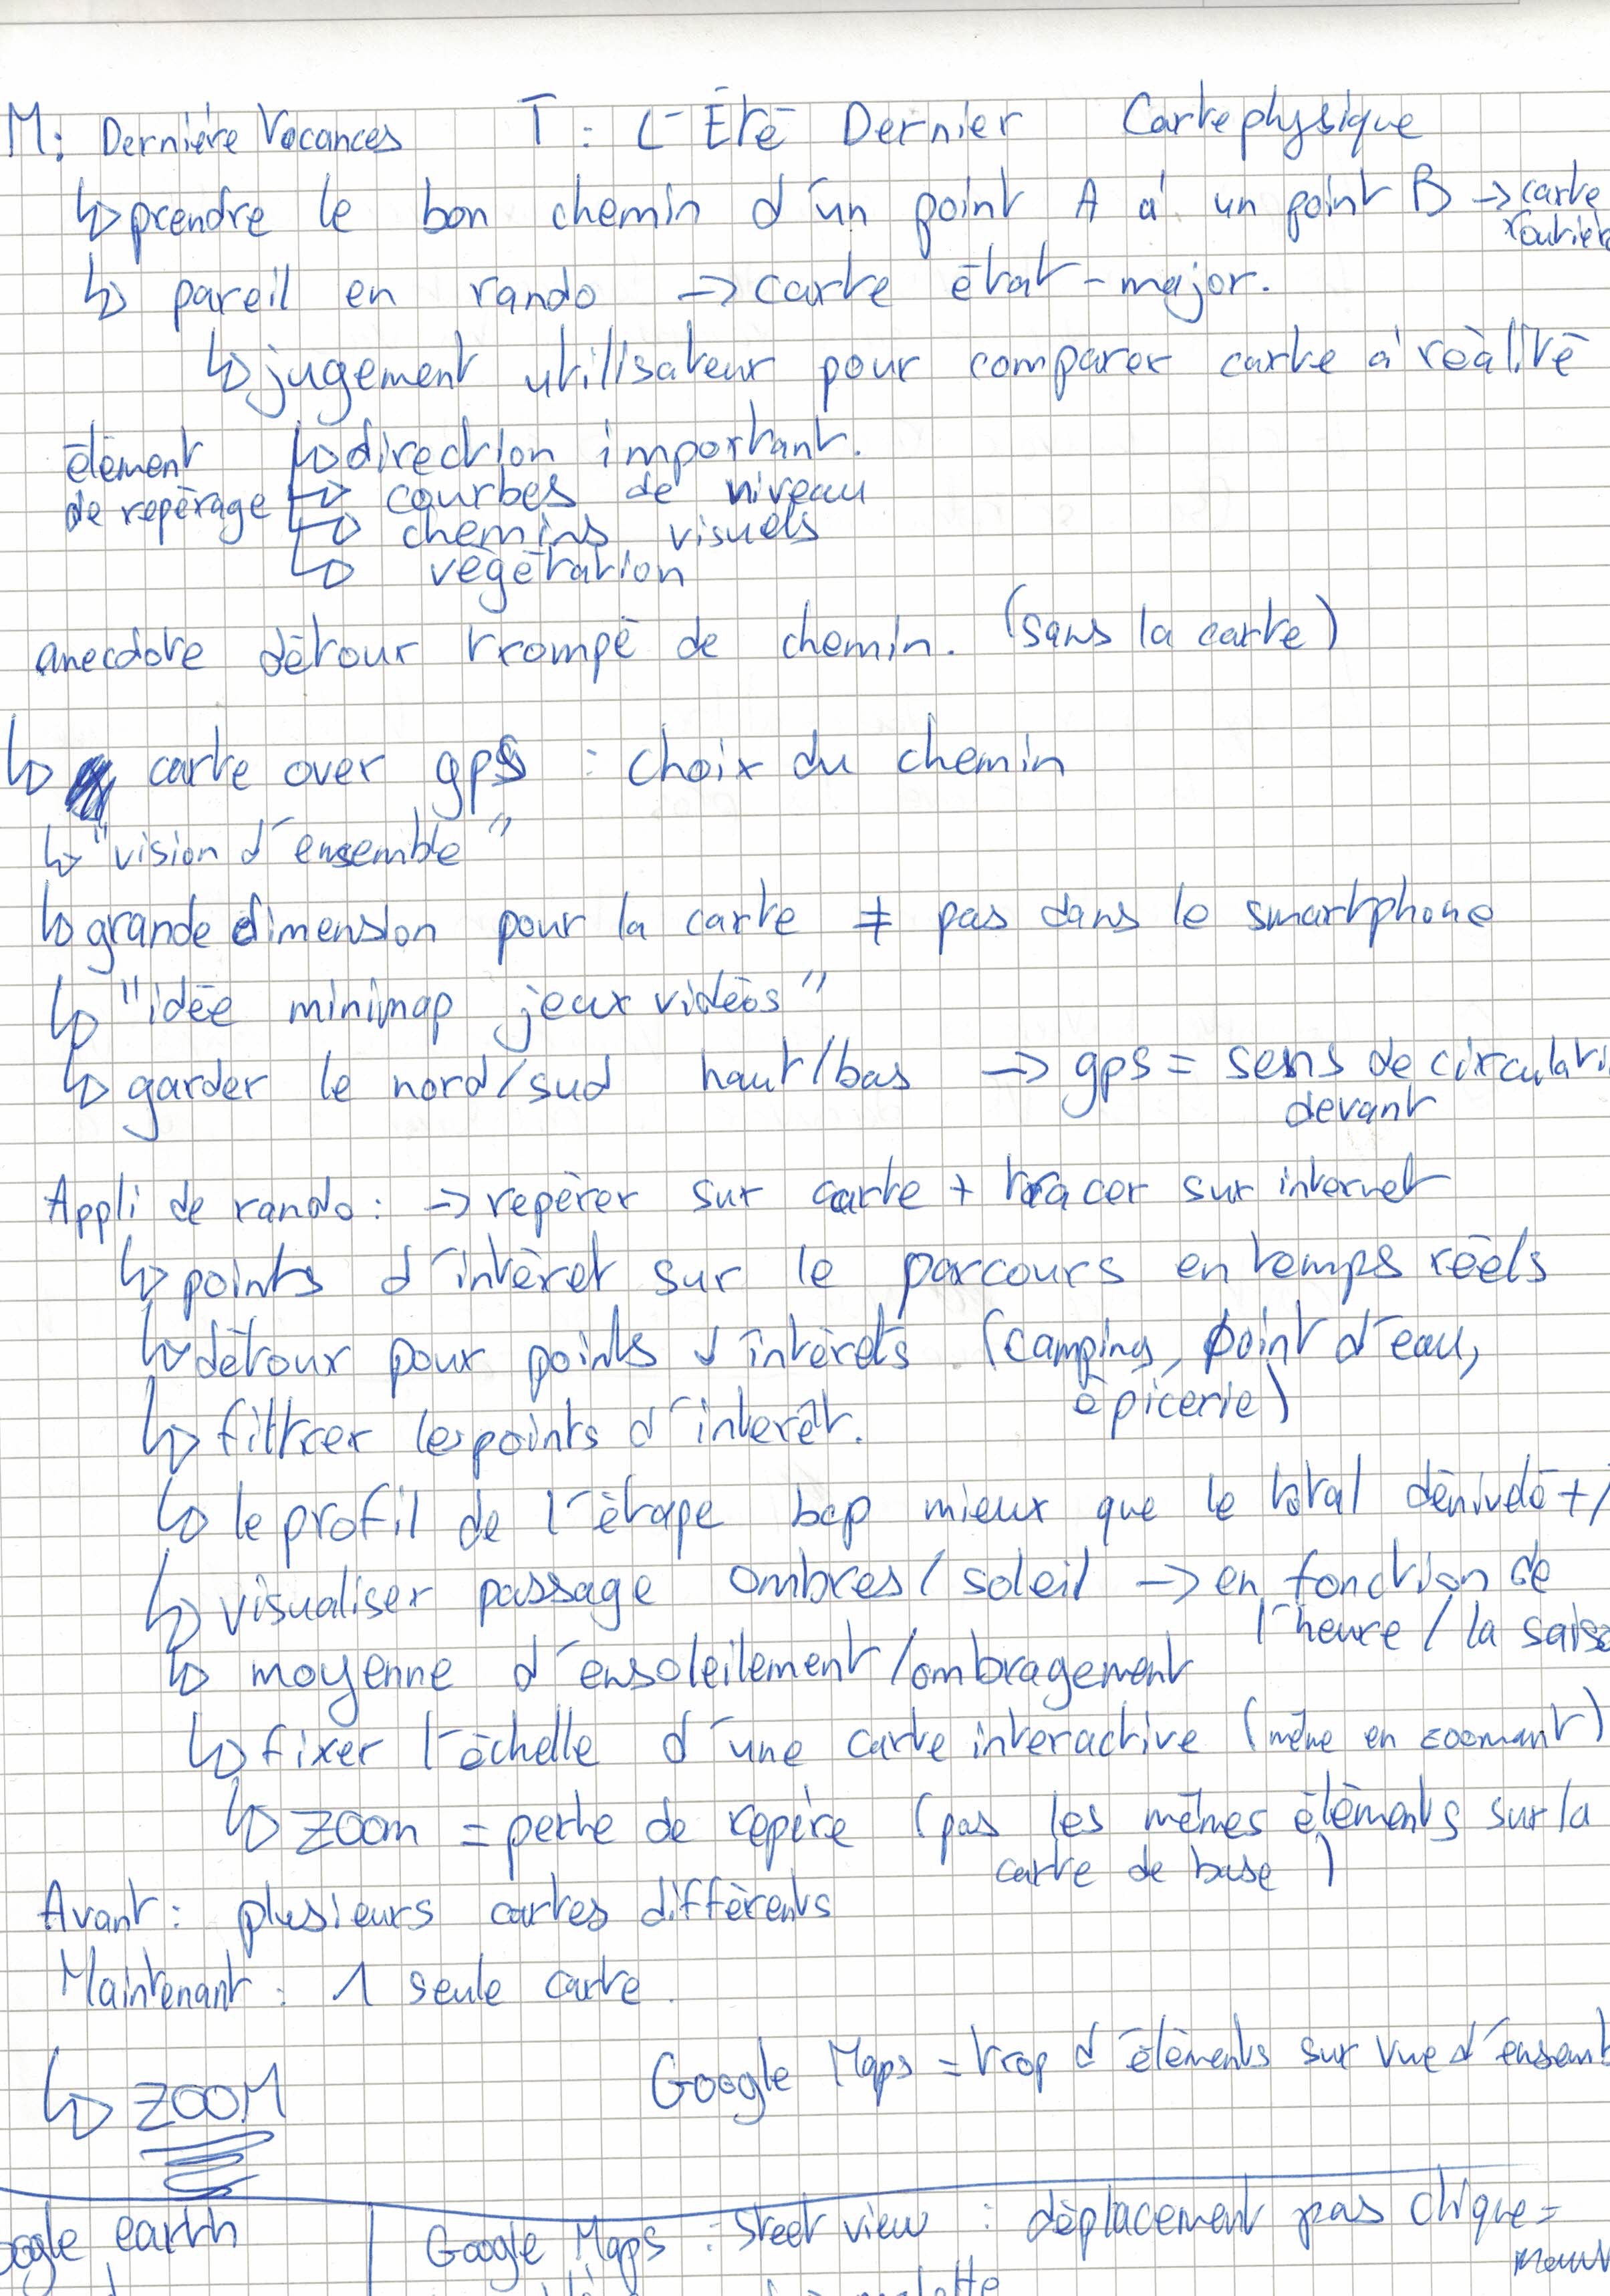 M: Dernière Vacances T : L'Été Dernier Carte physique
↳ prendre le bon chemin d'un point A à un point B → carte
routière
↳ pareil en rando → carte état-major.
↳ jugement utilisateur pour comparer carte à réalité
élément ↳ direction important.
de repérage ↳ courbes de niveau
↳ chemins visuels
↳ végétation
anecdote détour trompé de chemin. (sans la carte)
↳ carte over gps : choix du chemin
↳ "vision d'ensemble"
↳ grande dimension pour la carte ≠ pas dans le smartphone
↳ "idée minimap jeux vidéos"
↳ garder le nord/sud haut/bas → gps = sens de circulati
devant
Appli de rando : → repérer sur carte + tracer sur internet
↳ points d'intérêt sur le parcours en temps réels
↳ détour pour points d'intérêts (camping, point d'eau,
épicerie)
↳ filtrer les points d'interêt.
↳ le profil de l'étape bcp mieux que le total dénivelé +/
↳ visualiser passage ombres/soleil → en fonction de
l'heure / la saiso
↳ moyenne d'ensoleilement/ombragement
↳ fixer l'échelle d'une carte interactive (même en zoomant)
↳ zoom = perte de repère (pas les mêmes éléments sur la
carte de base)
Avant : plusieurs cartes différents
Maintenant : 1 seule carte.
↳ ZOOM Google Maps = trop d'éléments sur vue d'ensemb
oogle earth Google Maps : Street view : déplacement pas clique =